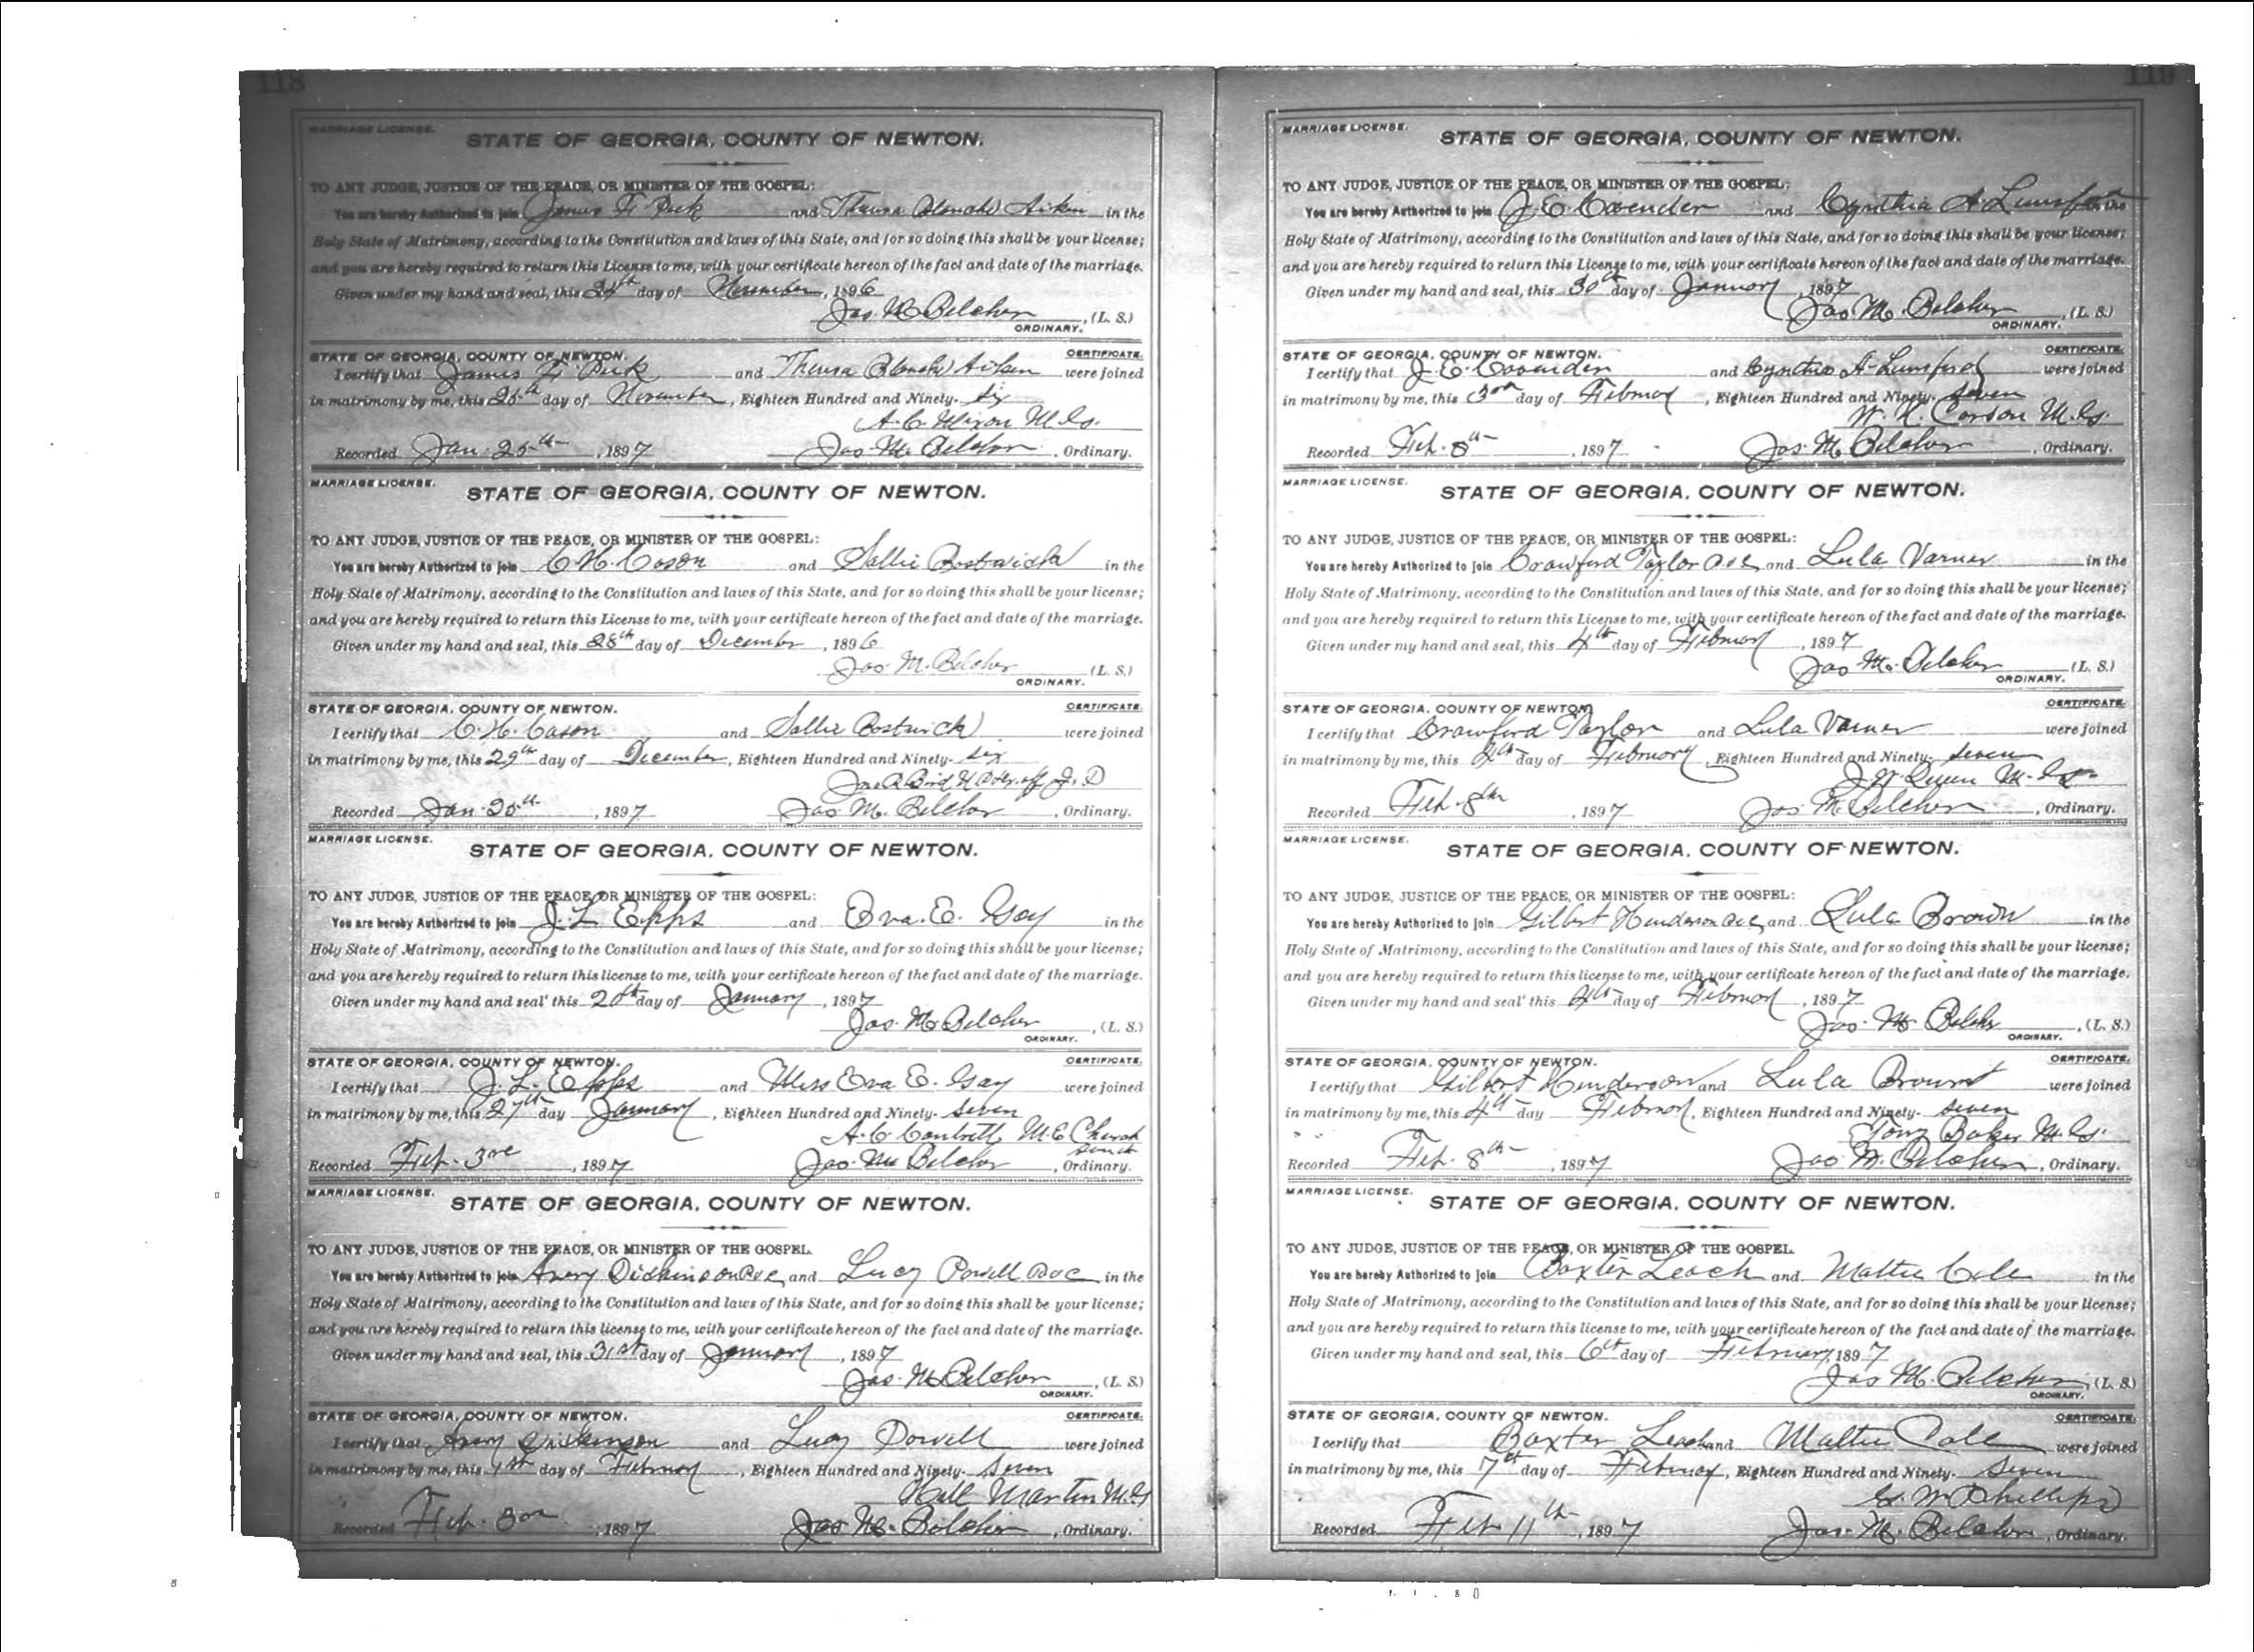 118
MARRIAGE LICENSE.
STATE OF GEORGIA, COUNTY OF NEWTON.
TO ANY JUDGE, JUSTICE OF THE PEACE, OR MINISTER OF THE GOSPEL:
You are hereby Authorized to join James F. and Aiken in the
Holy State of Matrimony, according to the Constitution and laws of this State, and for so doing this shall be your license;
and you are hereby required to return this License to me, with your certificate hereon of the fact and date of the marriage.
Given under my hand and seal, this 24th day of November, 1896
Jas. M. Belcher, (L. S.)
ORDINARY.
STATE OF GEORGIA, COUNTY OF NEWTON. CERTIFICATE.
I certify that James F. and Aiken were joined
in matrimony by me, this 25th day of November, Eighteen Hundred and Ninety- six
A. C. Mixon M. G.
Recorded Jan. 25th, 1897 Jas. M. Belcher, Ordinary.
MARRIAGE LICENSE.
STATE OF GEORGIA, COUNTY OF NEWTON.
TO ANY JUDGE, JUSTICE OF THE PEACE, OR MINISTER OF THE GOSPEL:
You are hereby Authorized to join C. H. Cason and Sallie Bostwick in the
Holy State of Matrimony, according to the Constitution and laws of this State, and for so doing this shall be your license;
and you are hereby required to return this License to me, with your certificate hereon of the fact and date of the marriage.
Given under my hand and seal, this 28th day of December, 1896
Jas. M. Belcher (L. S.)
ORDINARY.
STATE OF GEORGIA, COUNTY OF NEWTON. CERTIFICATE.
I certify that C. H. Cason and Sallie Bostwick were joined
in matrimony by me, this 29th day of December, Eighteen Hundred and Ninety- six
Recorded Jan. 25th, 1897 Jas. M. Belcher, Ordinary.
MARRIAGE LICENSE.
STATE OF GEORGIA, COUNTY OF NEWTON.
TO ANY JUDGE, JUSTICE OF THE PEACE, OR MINISTER OF THE GOSPEL:
You are hereby Authorized to join J. L. Epps and Eva. E. Gay in the
Holy State of Matrimony, according to the Constitution and laws of this State, and for so doing this shall be your license;
and you are hereby required to return this license to me, with your certificate hereon of the fact and date of the marriage.
Given under my hand and seal' this 20th day of January, 1897
Jas. M. Belcher, (L. S.)
ORDINARY.
STATE OF GEORGIA, COUNTY OF NEWTON. CERTIFICATE.
I certify that J. L. Epps and Miss Eva E. Gay were joined
in matrimony by me, this 27th day January, Eighteen Hundred and Ninety- seven
A. C. Cantrell M. E. Church
South
Recorded Feb. 3rd, 1897 Jas. M. Belcher, Ordinary.
MARRIAGE LICENSE.
STATE OF GEORGIA, COUNTY OF NEWTON.
TO ANY JUDGE, JUSTICE OF THE PEACE, OR MINISTER OF THE GOSPEL.
You are hereby Authorized to join Avery Dickinson and Lucy Powell in the
Holy State of Matrimony, according to the Constitution and laws of this State, and for so doing this shall be your license;
and you are hereby required to return this license to me, with your certificate hereon of the fact and date of the marriage.
Given under my hand and seal, this 31st day of January, 1897
Jas. M. Belcher, (L. S.)
ORDINARY.
STATE OF GEORGIA, COUNTY OF NEWTON. CERTIFICATE.
I certify that Avery Dickinson and Lucy Powell were joined
in matrimony by me, this 1st day of February, Eighteen Hundred and Ninety- Seven
Martin M. G
Recorded Feb. 3rd, 1897 Jas. M. Belcher, Ordinary.
119
MARRIAGE LICENSE.
STATE OF GEORGIA, COUNTY OF NEWTON.
TO ANY JUDGE, JUSTICE OF THE PEACE, OR MINISTER OF THE GOSPEL:
You are hereby Authorized to join J. E. Cavender and Cynthia A. Lunsford in the
Holy State of Matrimony, according to the Constitution and laws of this State, and for so doing this shall be your license;
and you are hereby required to return this License to me, with your certificate hereon of the fact and date of the marriage.
Given under my hand and seal, this 30th day of January, 1897
Jas. M. Belcher, (L. S.)
ORDINARY.
STATE OF GEORGIA, COUNTY OF NEWTON. CERTIFICATE.
I certify that J. E. Cavender and Cynthia A. Lunsford were joined
in matrimony by me, this 3rd day of February, Eighteen Hundred and Ninety- seven
W. H. M. G.
Recorded Feb. 8th, 1897 Jas. M. Belcher, Ordinary.
MARRIAGE LICENSE.
STATE OF GEORGIA, COUNTY OF NEWTON.
TO ANY JUDGE, JUSTICE OF THE PEACE, OR MINISTER OF THE GOSPEL:
You are hereby Authorized to join Crawford Taylor and Lula Varner in the
Holy State of Matrimony, according to the Constitution and laws of this State, and for so doing this shall be your license;
and you are hereby required to return this License to me, with your certificate hereon of the fact and date of the marriage.
Given under my hand and seal, this 4th day of February, 1897
Jas. M. Belcher (L. S.)
ORDINARY.
STATE OF GEORGIA, COUNTY OF NEWTON CERTIFICATE.
I certify that Crawford Taylor and Lula Varner were joined
in matrimony by me, this 4th day of February, Eighteen Hundred and Ninety- seven
M. G.
Recorded Feb. 8th, 1897 Jas. M. Belcher, Ordinary.
MARRIAGE LICENSE.
STATE OF GEORGIA, COUNTY OF NEWTON.
TO ANY JUDGE, JUSTICE OF THE PEACE, OR MINISTER OF THE GOSPEL:
You are hereby Authorized to join Gilbert Henderson and Lula Brown in the
Holy State of Matrimony, according to the Constitution and laws of this State, and for so doing this shall be your license;
and you are hereby required to return this license to me, with your certificate hereon of the fact and date of the marriage.
Given under my hand and seal' this 4th day of February, 1897
Jas. M. Belcher, (L. S.)
ORDINARY.
STATE OF GEORGIA, COUNTY OF NEWTON. CERTIFICATE.
I certify that Gilbert Henderson and Lula Brown were joined
in matrimony by me, this 4th day February, Eighteen Hundred and Ninety- seven
Tony Baker M. G.
Recorded Feb. 8th, 1897 Jas. M. Belcher, Ordinary.
MARRIAGE LICENSE.
STATE OF GEORGIA, COUNTY OF NEWTON.
TO ANY JUDGE, JUSTICE OF THE PEACE, OR MINISTER OF THE GOSPEL.
You are hereby Authorized to join Baxter Leach and Mattie Cole in the
Holy State of Matrimony, according to the Constitution and laws of this State, and for so doing this shall be your license;
and you are hereby required to return this license to me, with your certificate hereon of the fact and date of the marriage.
Given under my hand and seal, this 6th day of February, 1897
Jas. M. Belcher, (L. S.)
ORDINARY.
STATE OF GEORGIA, COUNTY OF NEWTON. CERTIFICATE.
I certify that Baxter Leach and Mattie Cole were joined
in matrimony by me, this 7th day of February, Eighteen Hundred and Ninety- Seven
W Phillips
Recorded Feb 11th, 1897 Jas. M. Belcher, Ordinary.